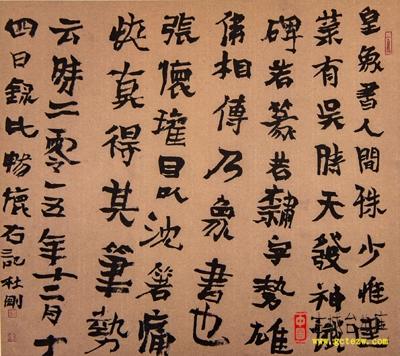 皇象書人間殊少惟建
業有吳時天發神讖
碑若篆若隸字勢雄
偉相傳乃象書也
張懷瓘目以沈著痛
快真得其筆勢
云時二零一五年十二月十
四日錄比暢 杜剛
www.gctezw.com